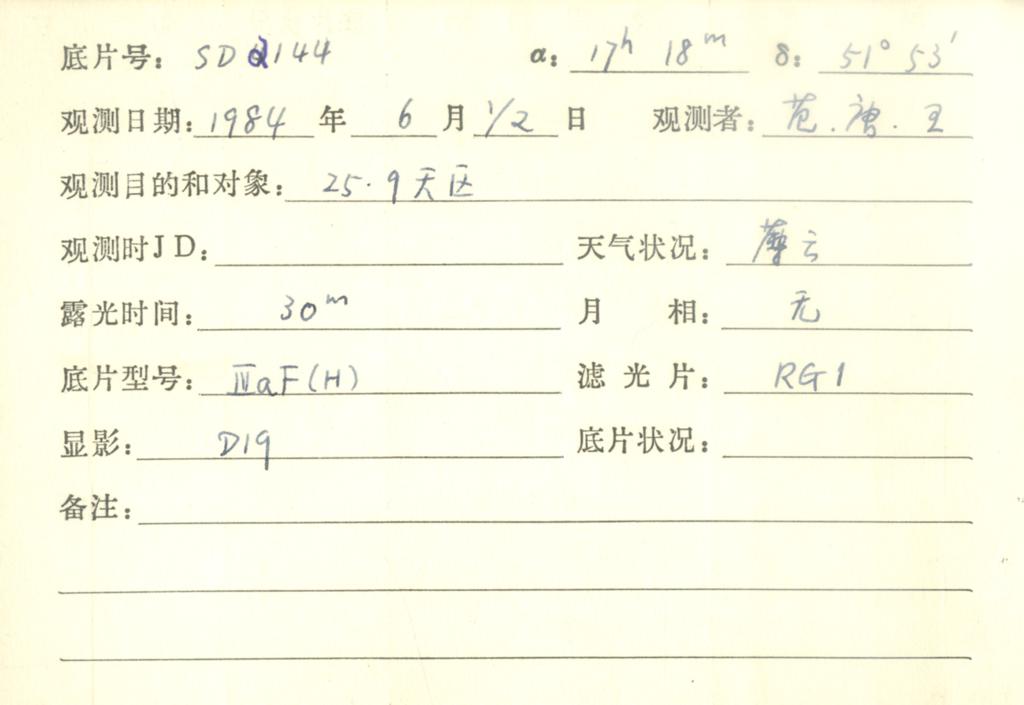 底片号: SDQ144 α: 17ʰ 18ᵐ δ: 51° 53′
观测日期: 1984 年 6 月 1/2 日 观测者: 范.唐.王
观测目的和对象: 25.9天区
观测时JD: 天气状况: 薄云
露光时间: 30ᵐ 月 相: 无
底片型号: ⅣaF(H) 滤光片: RG1
显影: D19 底片状况:
备注: